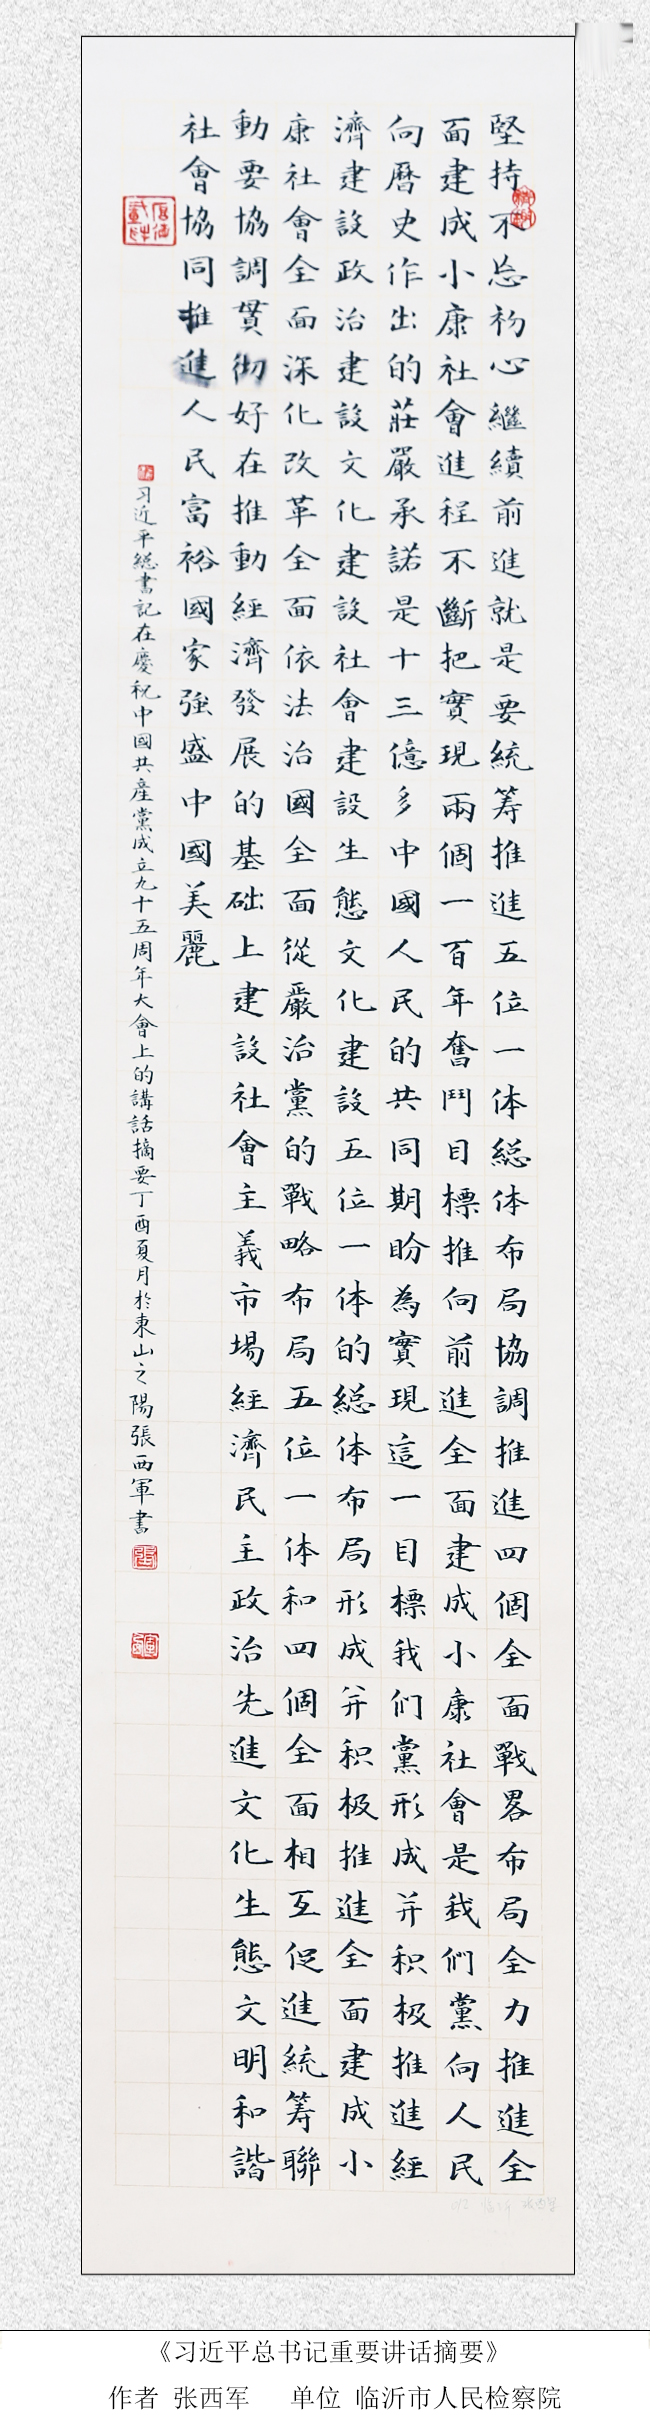 堅持不忘初心繼續前進就是要統筹推進五位一体総体布局協調推進四個全面戰畧布局全力推進全
面建成小康社會進程不斷把實現兩個一百年奮鬥目標推向前進全面建成小康社會是我們黨向人民
向曆史作出的莊嚴承諾是十三億多中國人民的共同期盼為實現這一目標我们黨形成并积极推進經
濟建設政治建設文化建設社會建設生態文化建設五位一体的総体布局形成并积极推進全面建成小
康社會全面深化改革全面依法治國全面從嚴治黨的戰略布局五位一体和四個全面相互促進統筹聯
動要協調貫彻好在推動經濟發展的基础上建設社會主義市場經濟民主政治先進文化生態文明和諧
社會協同推進人民富裕國家強盛中國美麗
习近平総書記在慶祝中國共產黨成立九十五周年大會上的講話摘要丁酉夏月於東山之陽張西軍書
《习近平总书记重要讲话摘要》
作者 张西军 单位 临沂市人民检察院